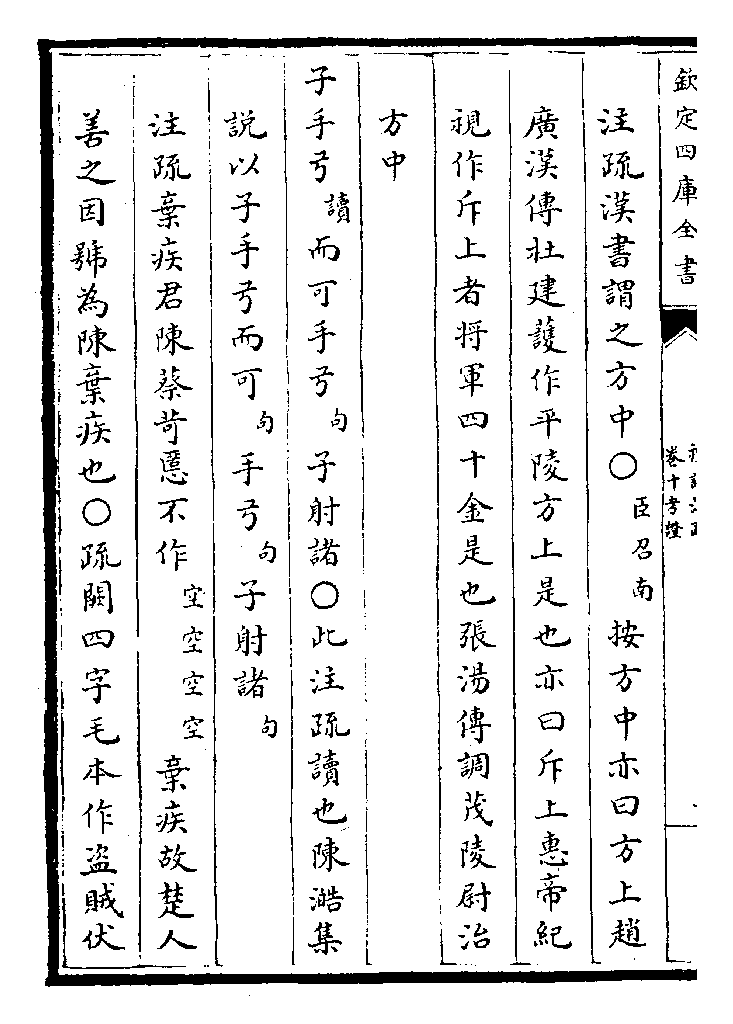 欽定四庫全書
卷十考證
注疏漢書謂之方中○臣召南按方中亦曰方上趙
廣漢傳杜建護作平陵方上是也亦曰斥上惠帝紀
視作斥上者將軍四十金是也張湯傳調茂陵尉治
方中
子手弓讀而可手弓句子射諸○此注疏讀也陳澔集
說以子手弓而可句手弓句子射諸句
注疏棄疾君陳蔡苛慝不作空空空空棄疾故楚人
善之因號為陳棄疾也○疏闕四字毛本作盜賊伏